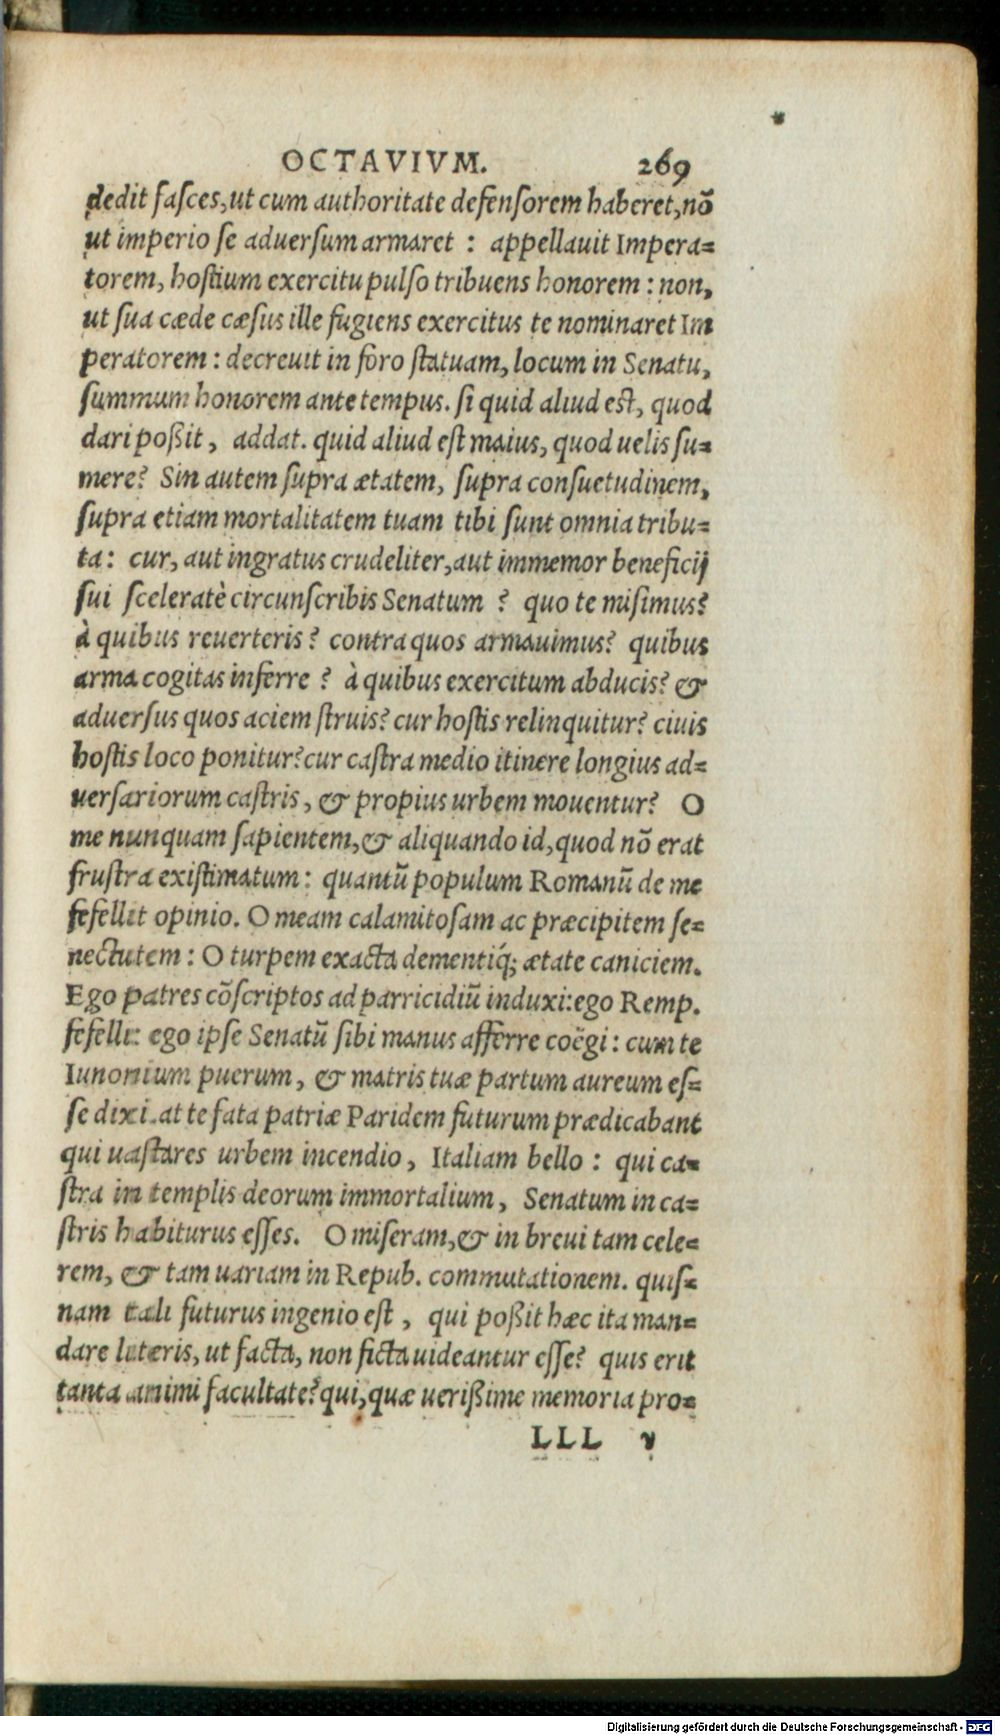 OCTAVIVM. 269
dedit fasces, ut cum authoritate defensorem haberet, nõ
ut imperio se adversum armaret : appellauit Impera=
torem, hostium exercitu pulso tribuens honorem : non,
ut sua cæde cæsus ille fugiens exercitus te nominaret Im
peratorem : decreuit in foro statuam, locum in Senatu,
summum honorem ante tempus. si quid aliud est, quod
dari poßit, addat. quid aliud est maius, quod uelis su=
mere? Sin autem supra ætatem, supra consuetudinem,
supra etiam mortalitatem tuam tibi sunt omnia tribu=
ta : cur, aut ingratus crudeliter, aut immemor beneficij
sui sceleratè circunscribis Senatum ? quo te misimus?
à quibus reuerteris? contra quos armauimus? quibus
arma cogitas inferre ? à quibus exercitum abducis? &
aduersus quos aciem struis? cur hostis relinquitur? ciuis
hostis loco ponitur? cur castra medio itinere longius ad=
uersariorum castris, & propius urbem mouentur? O
me nunquam sapientem, & aliquando id, quod nõ erat
frustra existimatum : quantũ populum Romanũ de me
fefellit opinio. O meam calamitosam ac præcipitem se=
nectutem : O turpem exacta dementiq́; ætate caniciem.
Ego patres cõscriptos ad parricidiũ induxi : ego Remp.
fefelli: ego ipse Senatũ sibi manus afferre coëgi : cum te
Iunonium puerum, & matris tuæ partum aureum es=
se dixi. at te fata patriæ Paridem futurum prædicabant
qui uastares urbem incendio, Italiam bello : qui ca=
stra in templis deorum immortalium, Senatum in ca=
stris habiturus esses. O miseram, & in breui tam cele=
rem, & tam uariam in Repub. commutationem. quis=
nam tali futurus ingenio est, qui poßit hæc ita man=
dare literis, ut facta, non ficta uideantur esse? quis erit
tanta animi facultate? qui, quæ uerißime memoria pro=
LLL v
Digitalisierung gefördert durch die Deutsche Forschungsgemeinschaft - DFG